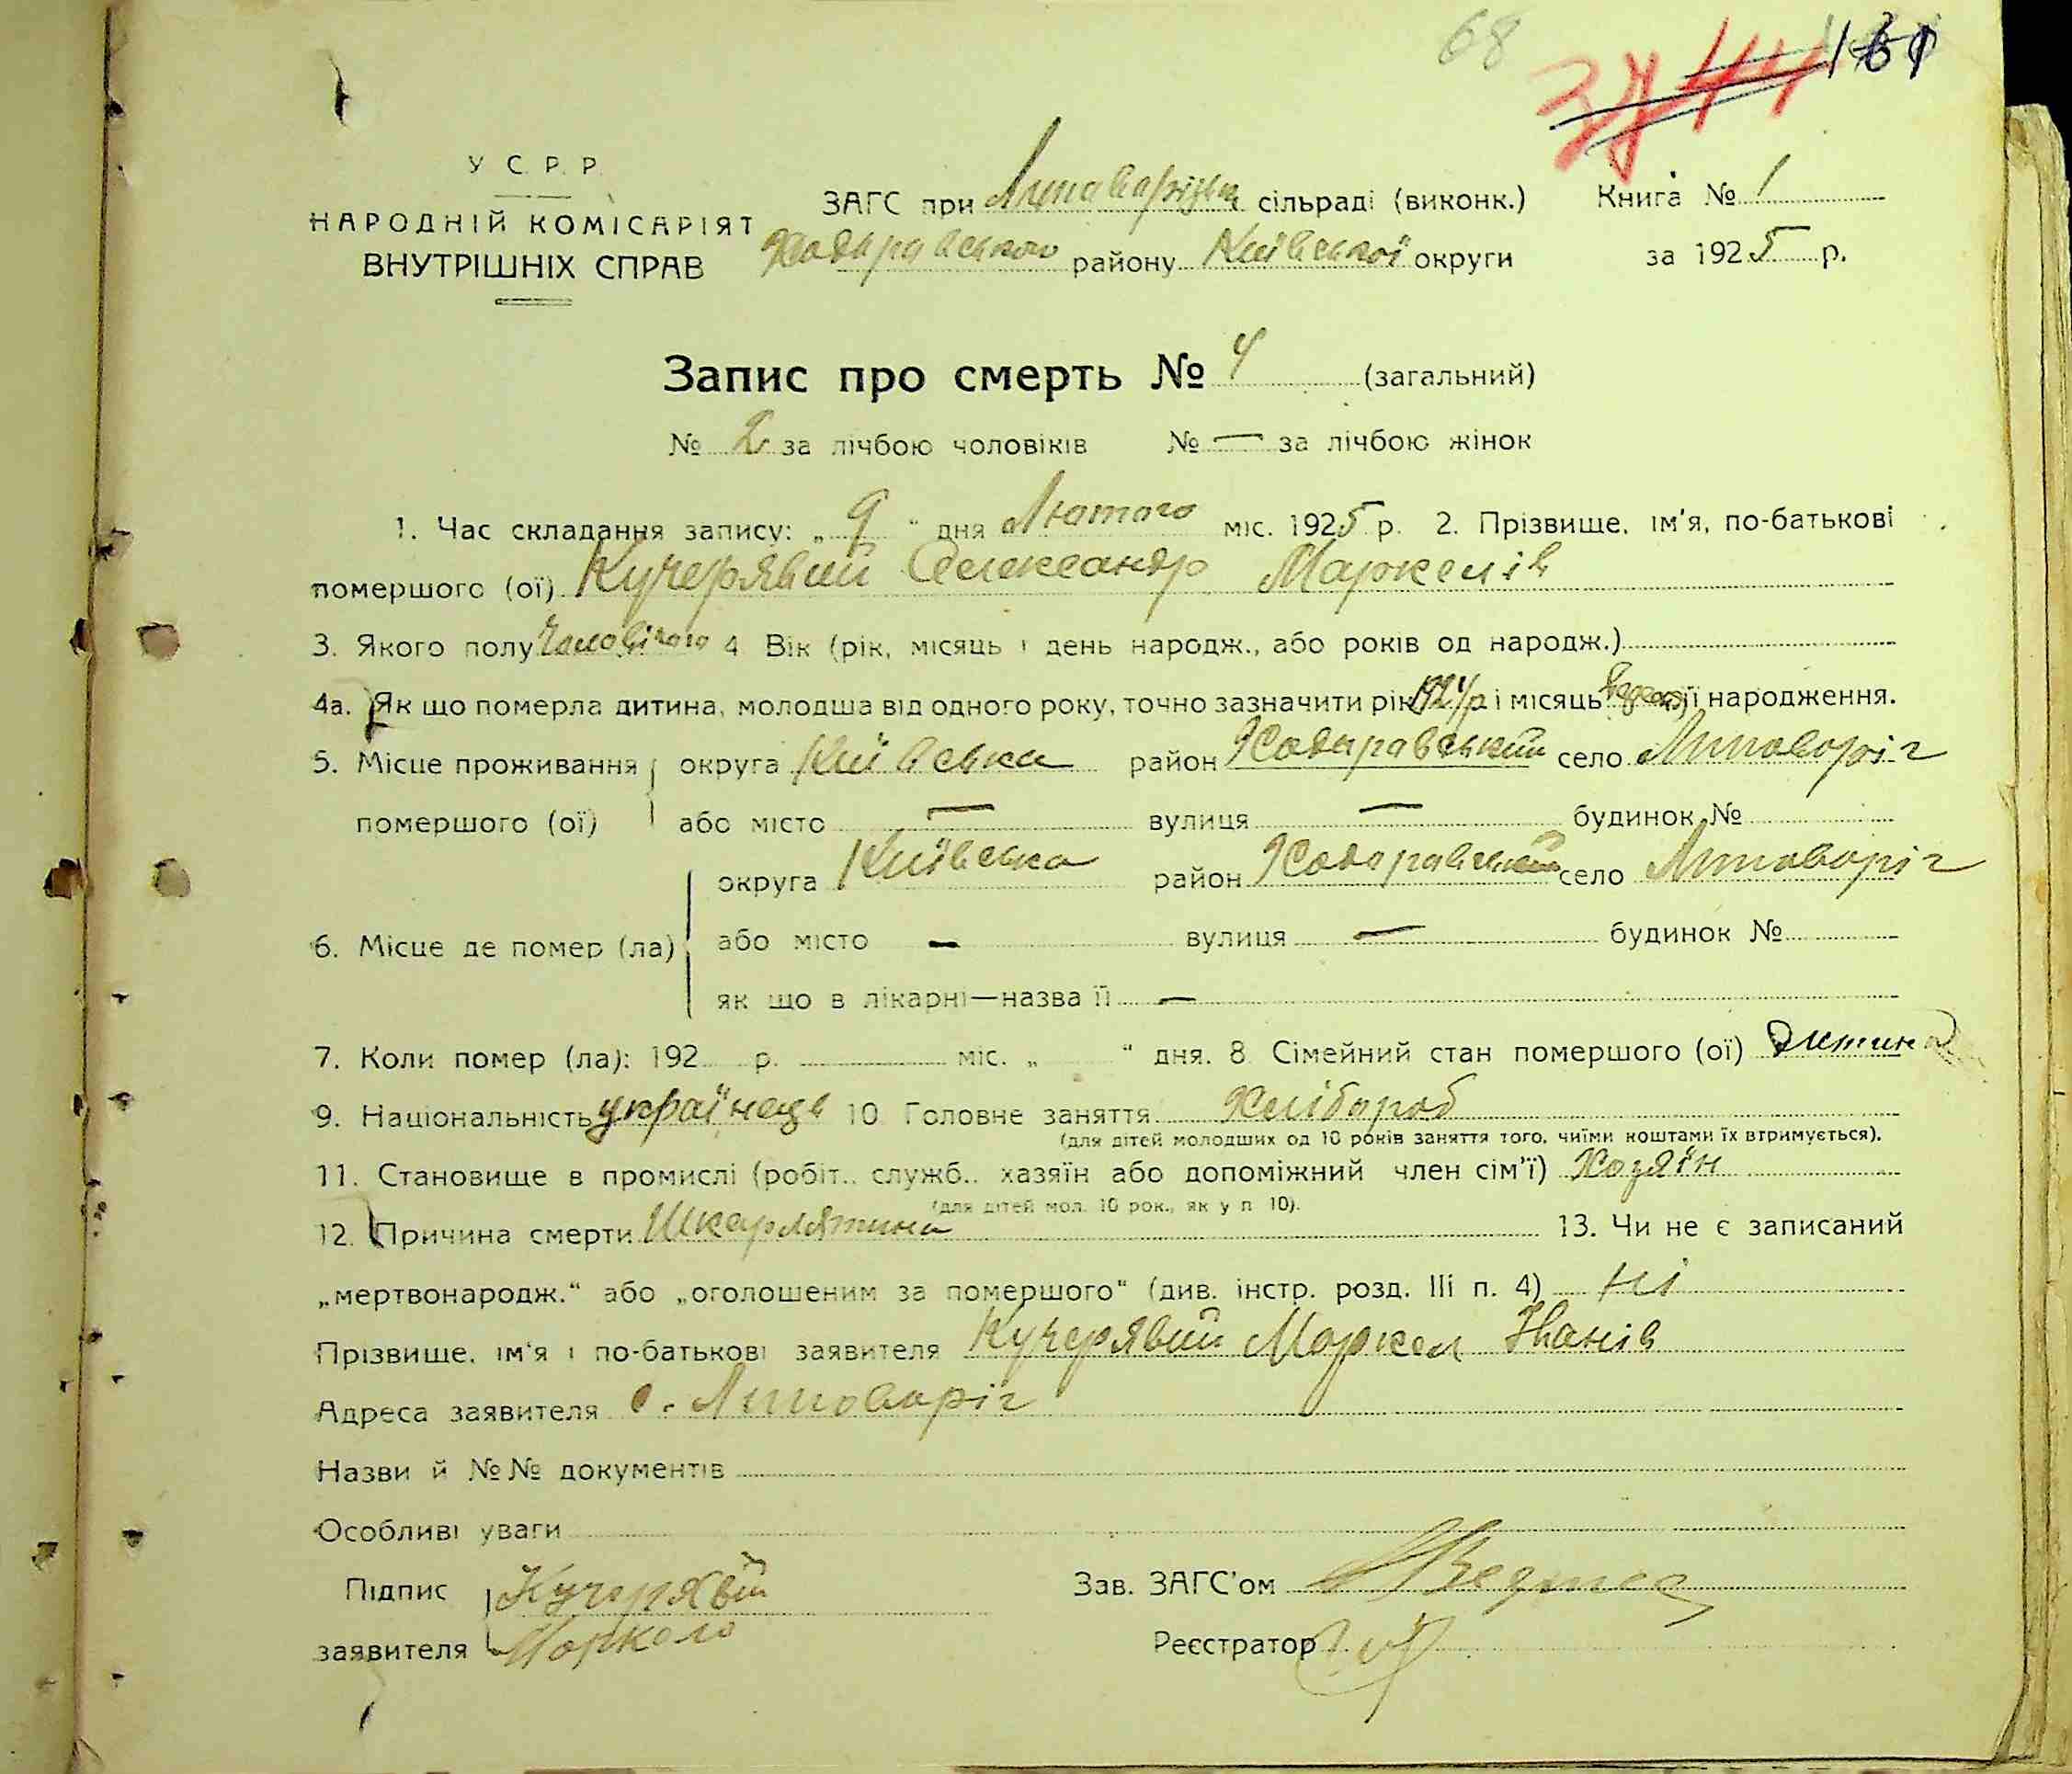 68 161
У С. Р. Р.
НАРОДНІЙ КОМІСАРІЯТ
ВНУТРІШНІХ СПРАВ
ЗАГС при сільраді (виконк.) Книга № 1
Ходорівського району Київської округи за 1925 р.
Запис про смерть № 4 (загальний)
№ 2 за лічбою чоловіків № — за лічбою жінок
1. Час складання запису: „ 9 " дня Лютого міс. 1925 р. 2. Прізвище, ім'я, по-батькові
помершого (ої) Кучерявий Олександр Маркелів
3. Якого полу Чоловічого 4 Вік (рік, місяць і день народж., або років од народж.)
4а. Як що померла дитина, молодша від одного року, точно зазначити рік 1924 р і місяць її народження.
5. Місце проживання округа Київська район Ходорівський село Липоворіг
помершого (ої) або місто — вулиця — будинок №
округа Київська район Ходорівський село Липоворіг
6. Місце де помер (ла) або місто — вулиця — будинок №
як що в лікарні—назва її —
7. Коли помер (ла): 192 р. міс. „ " дня. 8 Сімейний стан помершого (ої) Дитина
9. Національність українець 10 Головне заняття Хлібороб
(для дітей молодших од 10 років заняття того, чиїми коштами їх втримується).
11. Становище в промислі (робіт., служб., хазяїн або допоміжний член сім'ї) Хозяїн
(для дітей мол. 10 рок., як у п 10).
12. Причина смерти Шкарлятина 13. Чи не є записаний
„мертвонародж." або „оголошеним за помершого" (див. інстр. розд. III п. 4) ні
Прізвище, ім'я і по-батькові заявителя Кучерявий Маркел Іванів
Адреса заявителя с. Липоворіг
Назви й №№ документів
Особливі уваги
Підпис Кучерявий Зав. ЗАГС'ом
заявителя Реєстратор